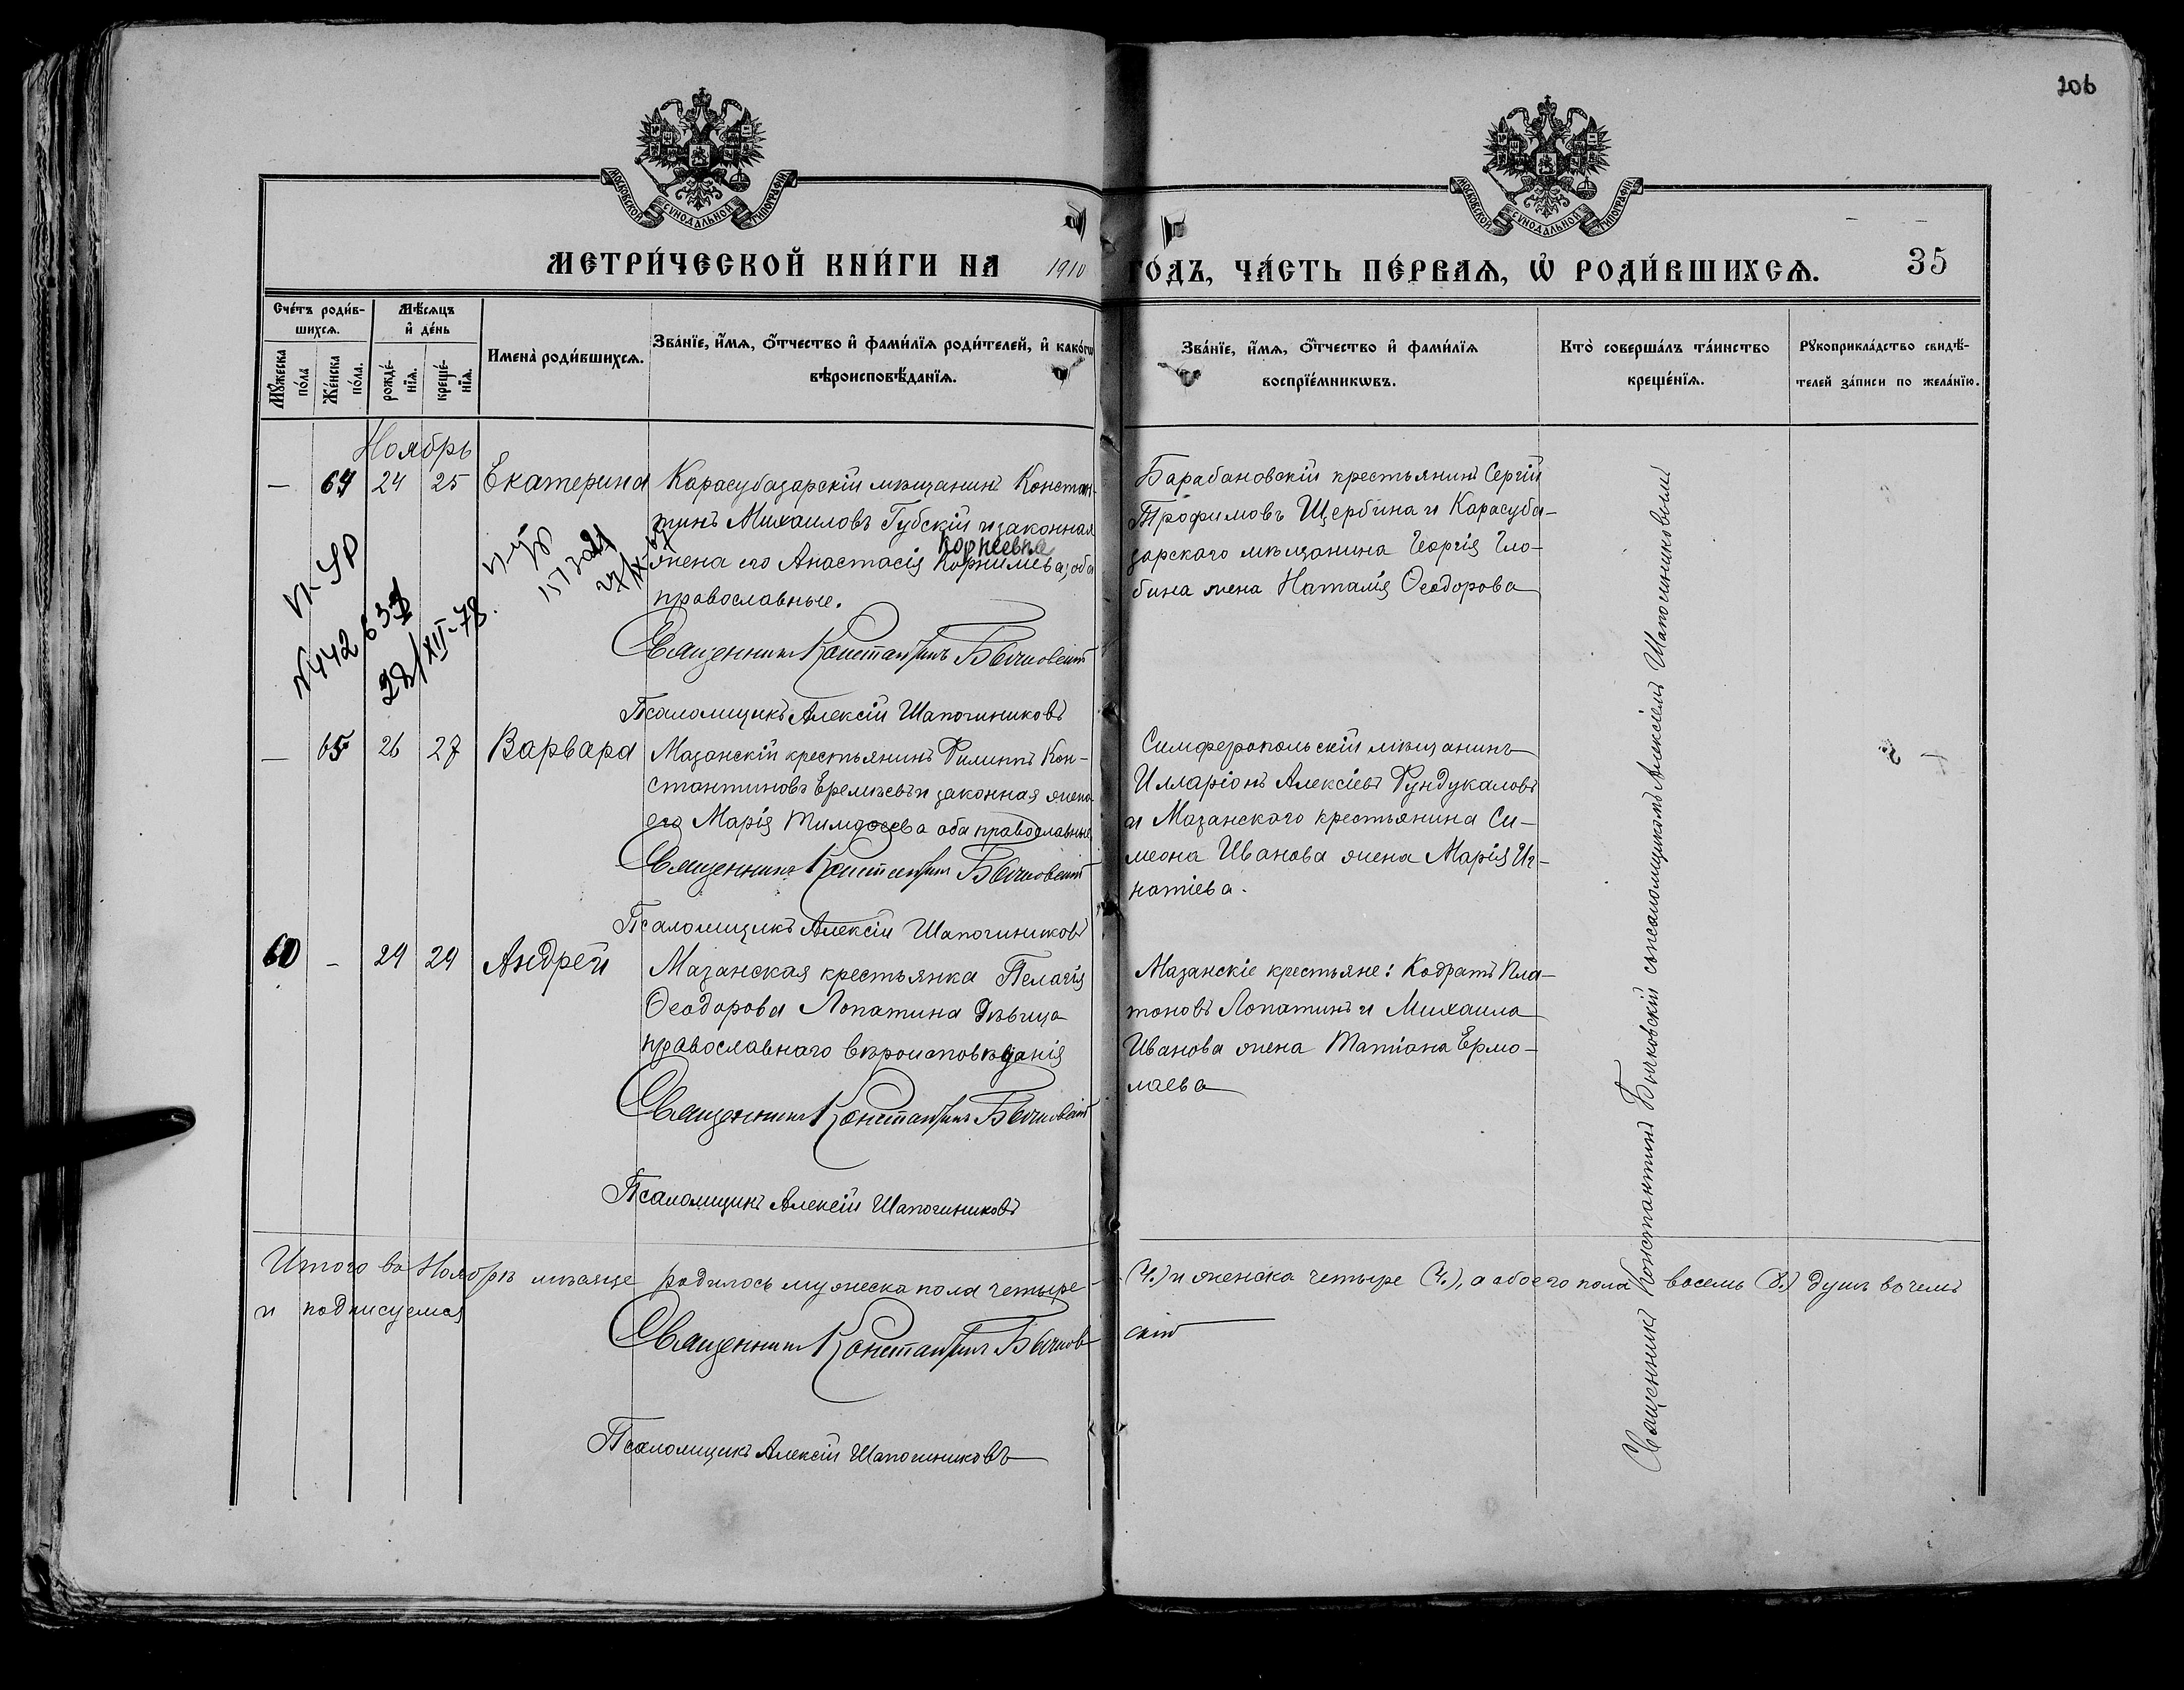 206
МОСКОВСКОЙ СѴНОДАЛЬНОЙ ТИПОГРАФІИ
МОСКОВСКОЙ СѴНОДАЛЬНОЙ ТИПОГРАФІИ
МЕТРИ́ЧЕСКОЙ КНИ́ГИ НА 1910 ГО́ДЪ, ЧА́СТЬ ПЕ́РВАѦ, Ѡ҆ РОДИ́ВШИХСѦ. 35
Сче́тъ роди́в-
шихсѧ.
Мꙋ́жеска по́ла
Же́нска по́ла.
Мѣ́сѧцъ
и҆ де́нь
рожде́-
нїѧ.
креще́-
нїѧ.
Имена̀ роди́вшихсѧ.
Зва́нїе, и҆́мѧ, ѻ҆́тчество и҆ фами́лїѧ роди́телей, и҆ како́гѡ
вѣроисповѣ́данїѧ.
Зва́нїе, и҆́мѧ, ѻ҆́тчество и҆ фами́лїѧ
воспрїе́мникѡвъ.
Кто̀ соверша́лъ та́инство
креще́нїѧ.
Рꙋкоприкла́дство свидѣ́-
телей за́писи по жела́нїю.
Ноябрь
— 64 24 25 Екатерина
Карасубазарскій мѣщанинъ Констан-
тинъ Михаиловъ Губскій и законная
Корнеевна
жена его Анастасія Корнилиева, оба
православные.
Священникъ Константинъ Бычковскій
Псаломщикъ Алексій Шапочниковъ
Барабановскій крестьянинъ Сергій
Трофимовъ Щербина и Карасуба-
зарскаго мѣщанина Георгія Гло-
бина жена Наталія Ѳеодорова
28/XII-78.
— 65 26 27 Варвара
Мазанскій крестьянинъ Филиппъ Кон-
стантиновъ Еремѣевъ и законная жена
его Марія Тимоѳеева оба православные
Священникъ Константинъ Бычковскій
Псаломщикъ Алексій Шапочниковъ
Симферопольскій мѣщанинъ
Илларіонъ Алексіевъ Фундукаловъ
и Мазанскаго крестьянина Си-
меона Иванова жена Марія Иг-
натіева.
60 — 29 29 Андрей
Мазанская крестьянка Пелагія
Ѳеодорова Лопатина дѣвица
православнаго вѣроисповѣданія
Священникъ Константинъ Бычковскій
Псаломщикъ Алексій Шапочниковъ
Мазанскіе крестьяне: Кодратъ Пла-
тоновъ Лопатинъ и Михаила
Иванова жена Татіана Ермо-
лаева
Священникъ Константинъ Бычковскій съ псаломщикомъ Алексіемъ Шапочниковымъ
Итого въ Ноябрѣ мѣсяце родилось мужеска пола четыре (4.) и женска четыре (4.), а обоего пола восемь (8.) душъ въ чемъ
и подписуемся
Священникъ Константинъ Бычковскій
Псаломщикъ Алексій Шапочниковъ